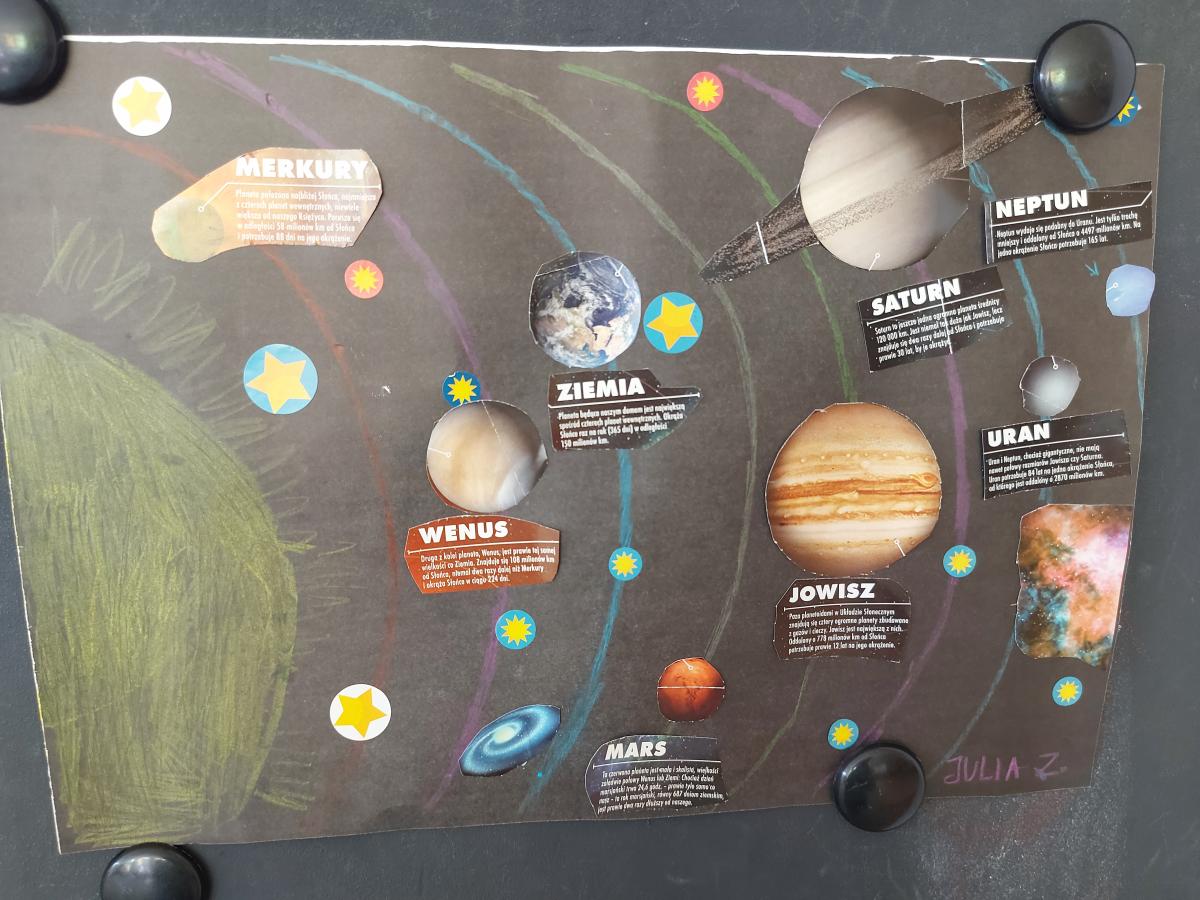 MERKURY
Planeta położona najbliżej Słońca, najmniejsza
z czterech planet wewnętrznych, niewiele
większa od naszego Księżyca. Porusza się
w odległości 58 milionów km od Słońca
i potrzebuje 88 dni na jego okrążenie.
WENUS
Druga z kolei planeta, Wenus, jest prawie tej samej
wielkości co Ziemia. Znajduje się 108 milionów km
od Słońca, niemal dwa razy dalej niż Merkury
i okrąża Słońce w ciągu 224 dni.
ZIEMIA
Planeta będąca naszym domem jest największą
spośród czterech planet wewnętrznych. Okrąża
Słońce raz na rok (365 dni) w odległości
150 milionów km.
MARS
Ta czerwona planeta jest mała i skalista, wielkości
zaledwie połowy Wenus lub Ziemi. Chociaż dzień
marsjański trwa 24,6 godz. – prawie tyle samo co
nasz – to rok marsjański, równy 687 dniom ziemskim,
jest prawie dwa razy dłuższy od naszego.
JOWISZ
Poza planetoidami w Układzie Słonecznym
znajdują się cztery ogromne planety zbudowane
z gazów i cieczy. Jowisz jest największą z nich.
Oddalony o 778 milionów km od Słońca
potrzebuje prawie 12 lat na jego okrążenie.
SATURN
Saturn to jeszcze jedna ogromna planeta średnicy
120 000 km. Jest niemal tak duża jak Jowisz, lecz
znajduje się dwa razy dalej od Słońca i potrzebuje
prawie 30 lat, by je okrążyć.
URAN
Uran i Neptun, chociaż gigantyczne, nie mają
nawet połowy rozmiarów Jowisza czy Saturna.
Uran potrzebuje 84 lat na jedno okrążenie Słońca,
od którego jest oddalony o 2870 milionów km.
NEPTUN
Neptun wydaje się podobny do Urana. Jest tylko trochę
mniejszy i oddalony od Słońca o 4497 milionów km. Na
jedno okrążenie Słońca potrzebuje 165 lat.
JULIA Z.